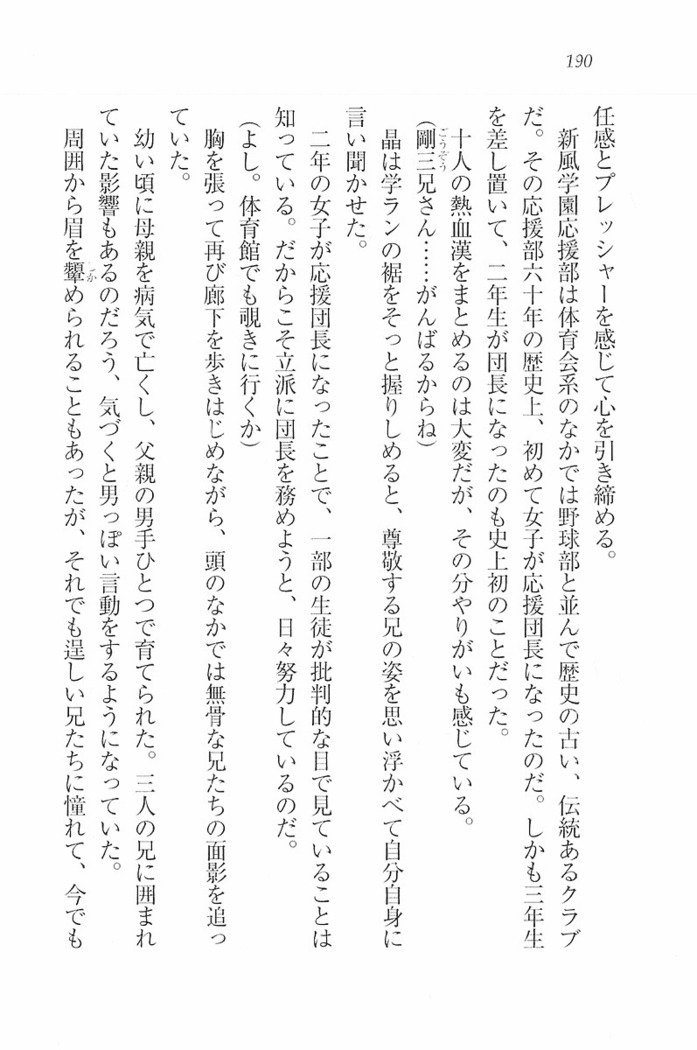 190
任感とプレッシャーを感じて心を引き締める。
新風学園応援部は体育会系のなかでは野球部と並んで歴史の古い、伝統あるクラブ
だ。その応援部六十年の歴史上、初めて女子が応援団長になったのだ。しかも三年生
を差し置いて、二年生が団長になったのも史上初のことだった。
十人の熱血漢をまとめるのは大変だが、その分やりがいも感じている。
(剛三兄さん……がんばるからね)
ごうぞう
晶は学ランの裾をそっと握りしめると、尊敬する兄の姿を思い浮かべて自分自身に
言い聞かせた。
二年の女子が応援団長になったことで、一部の生徒が批判的な目で見ていることは
知っている。だからこそ立派に団長を務めようと、日々努力しているのだ。
(よし。体育館でも覗きに行くか)
胸を張って再び廊下を歩きはじめながら、頭のなかでは無骨な兄たちの面影を追っ
ていた。
幼い頃に母親を病気で亡くし、父親の男手ひとつで育てられた。三人の兄に囲まれ
ていた影響もあるのだろう、気づくと男っぽい言動をするようになっていた。
周囲から眉を顰められることもあったが、それでも逞しい兄たちに憧れて、今でも